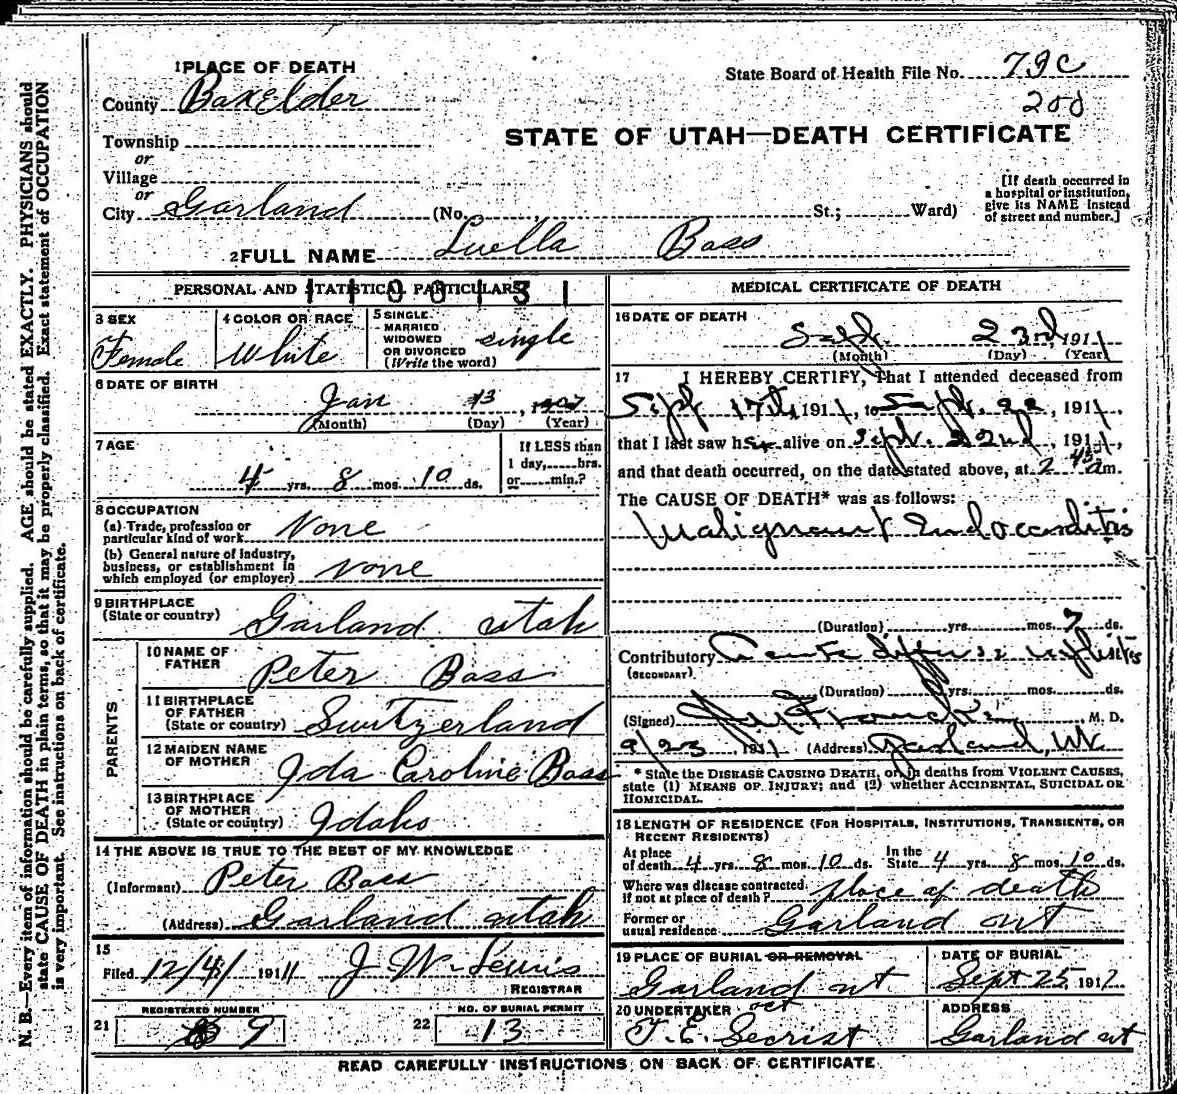 1 PLACE OF DEATH
State Board of Health File No. 79c
200
County BoxElder
STATE OF UTAH—DEATH CERTIFICATE
Township
or
Village
or
City Garland (No. St.; Ward)
[If death occurred in a hospital or institution, give its NAME instead of street and number.]
2 FULL NAME Luella Bass
PERSONAL AND STATISTICAL PARTICULARS
1100131
3 SEX Female
4 COLOR OR RACE White
5 SINGLE MARRIED WIDOWED OR DIVORCED (Write the word) single
6 DATE OF BIRTH
Jan 13, 1907
(Month) (Day) (Year)
7 AGE
4 yrs. 8 mos. 10 ds.
If LESS than 1 day, hrs. or min.?
8 OCCUPATION
(a) Trade, profession or particular kind of work None
(b) General nature of industry, business, or establishment in which employed (or employer) None
9 BIRTHPLACE (State or country) Garland Utah
PARENTS
10 NAME OF FATHER Peter Bass
11 BIRTHPLACE OF FATHER (State or country) Switzerland
12 MAIDEN NAME OF MOTHER Ida Caroline Bass
13 BIRTHPLACE OF MOTHER (State or country) Idaho
14 THE ABOVE IS TRUE TO THE BEST OF MY KNOWLEDGE
(Informant) Peter Bass
(Address) Garland Utah
15
Filed 12/4/ 1911 J W. Lewis
REGISTRAR
REGISTERED NUMBER
21 9
NO. OF BURIAL PERMIT
22 13
MEDICAL CERTIFICATE OF DEATH
16 DATE OF DEATH
Sept. 23rd 1911
(Month) (Day) (Year)
17 I HEREBY CERTIFY, That I attended deceased from
Sept 17th 1911, to Sept. 22, 1911,
that I last saw her alive on Sept. 22nd, 1911,
and that death occurred, on the date stated above, at 2 45 am.
The CAUSE OF DEATH* was as follows:
Malignant Endocarditis
(Duration) yrs. mos. 7 ds.
Contributory Acute diffuse nephritis
(SECONDARY)
(Duration) yrs. mos. ds.
(Signed) M. D.
9/23, 1911 (Address) Garland, Ut.
* State the DISEASE CAUSING DEATH, or, in deaths from VIOLENT CAUSES, state (1) MEANS OF INJURY; and (2) whether ACCIDENTAL, SUICIDAL OR HOMICIDAL.
18 LENGTH OF RESIDENCE (FOR HOSPITALS, INSTITUTIONS, TRANSIENTS, OR RECENT RESIDENTS)
At place of death 4 yrs. 8 mos. 10 ds. In the State 4 yrs. 8 mos. 10 ds.
Where was disease contracted, if not at place of death? place of death
Former or usual residence Garland ut
19 PLACE OF BURIAL OR REMOVAL
Garland ut
DATE OF BURIAL
Sept 25, 1911
20 UNDERTAKER oct
T. E. Secrist
ADDRESS
Garland ut
READ CAREFULLY INSTRUCTIONS ON BACK OF CERTIFICATE.
N. B.—Every item of information should be carefully supplied. AGE should be stated EXACTLY. PHYSICIANS should
state CAUSE OF DEATH in plain terms, so that it may be properly classified. Exact statement of OCCUPATION
is very important. See instructions on back of certificate.